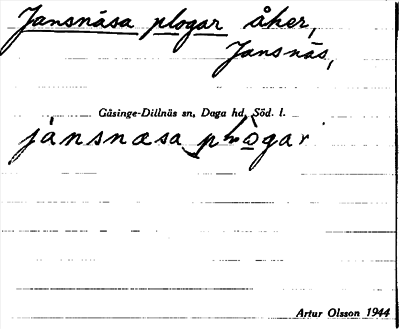 Jansnäsa plogar åker,
Jansnäs,
Gåsinge-Dillnäs sn, Daga hd, Söd. l.
jánsnæsa
Artur Olsson 1944